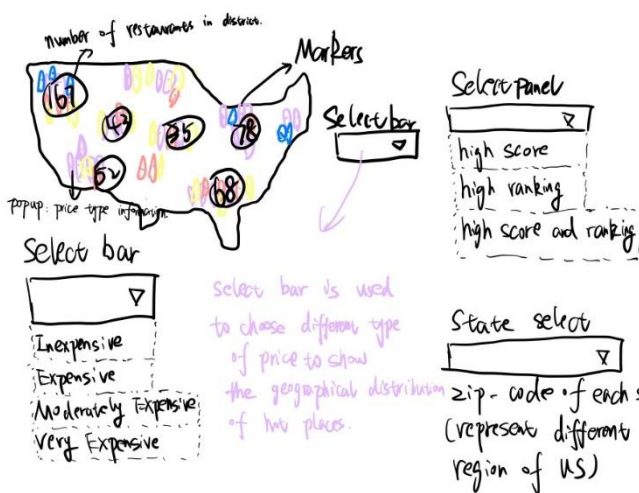 number of restaurants in district.
Markers
167
42
35
78
52
68
popup: price type information
Select bar
Select panel
high score
high ranking
high score and ranking
Select bar
Inexpensive
Expensive
Moderately Expensive
Very Expensive
select bar is used
to choose different type
of price to show
the geographical distribution
of hot places.
State select
zip-code of each s
(represent different
region of US)